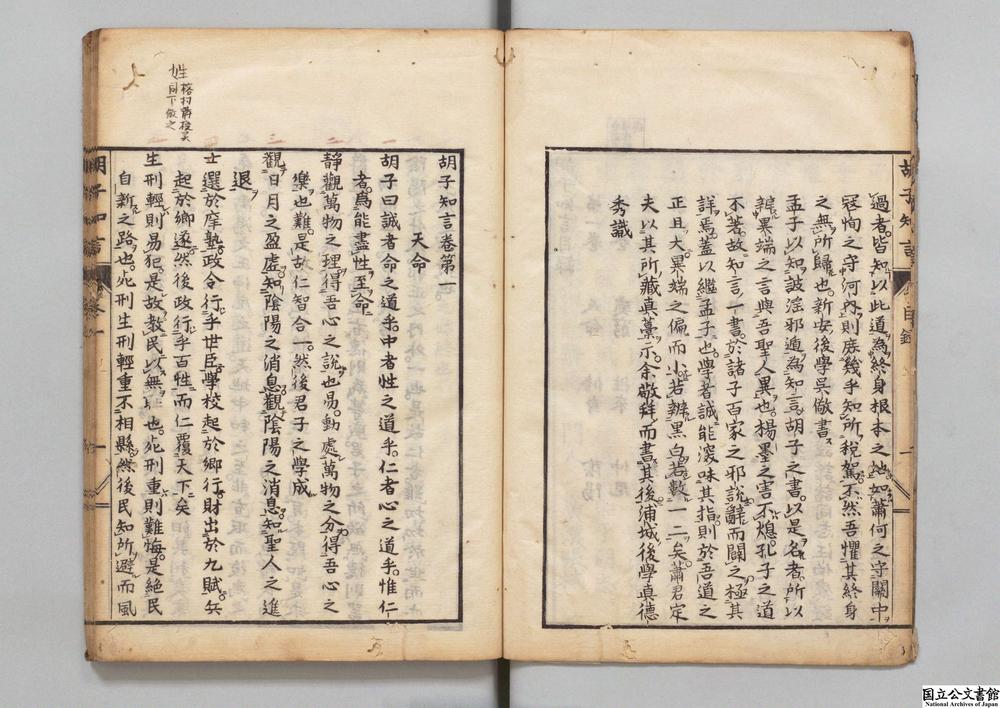 過者皆知以此道為終身根本之地如蕭何之守關中
冦恂之守河内則庶幾乎知所稅駕不然吾懼其終身
之無所歸也新安後學吳儆書
孟子以知詖淫邪遁為知言胡子之書以是名者所以
辨異端之言與吾聖人異也楊墨之害不熄孔子之道
不著故知言一書於諸子百家之邪說辭而闢之極其
詳焉蓋以繼孟子也學者誠能深味其指則於吾道之
正且大異端之偏而小若辨黑白若數一二矣蕭君定
夫以其所藏真藁示余敬拜而書其後浦城後學真德
秀識
胡子知言卷第一
天命
胡子曰誠者命之道乎中者性之道乎仁者心之道乎惟仁
者為能盡性至命
靜觀萬物之理得吾心之說也易動處萬物之分得吾心之
樂也難是故仁智合一然後君子之學成
觀日月之盈虛知陰陽之消息觀陰陽之消息知聖人之進
退
士選於庠塾政令行乎世臣學校起於鄉行財出於九賦兵
起於鄉遂然後政行乎百姓而仁覆天下矣
生刑輕則易犯是故教民以無恥也死刑重則難悔是絕民
自新之路也死刑生刑輕重不相縣然後民知所避而風
姓
同下倣之
胡子知言
一
国立公文書館
National Archives of Japan